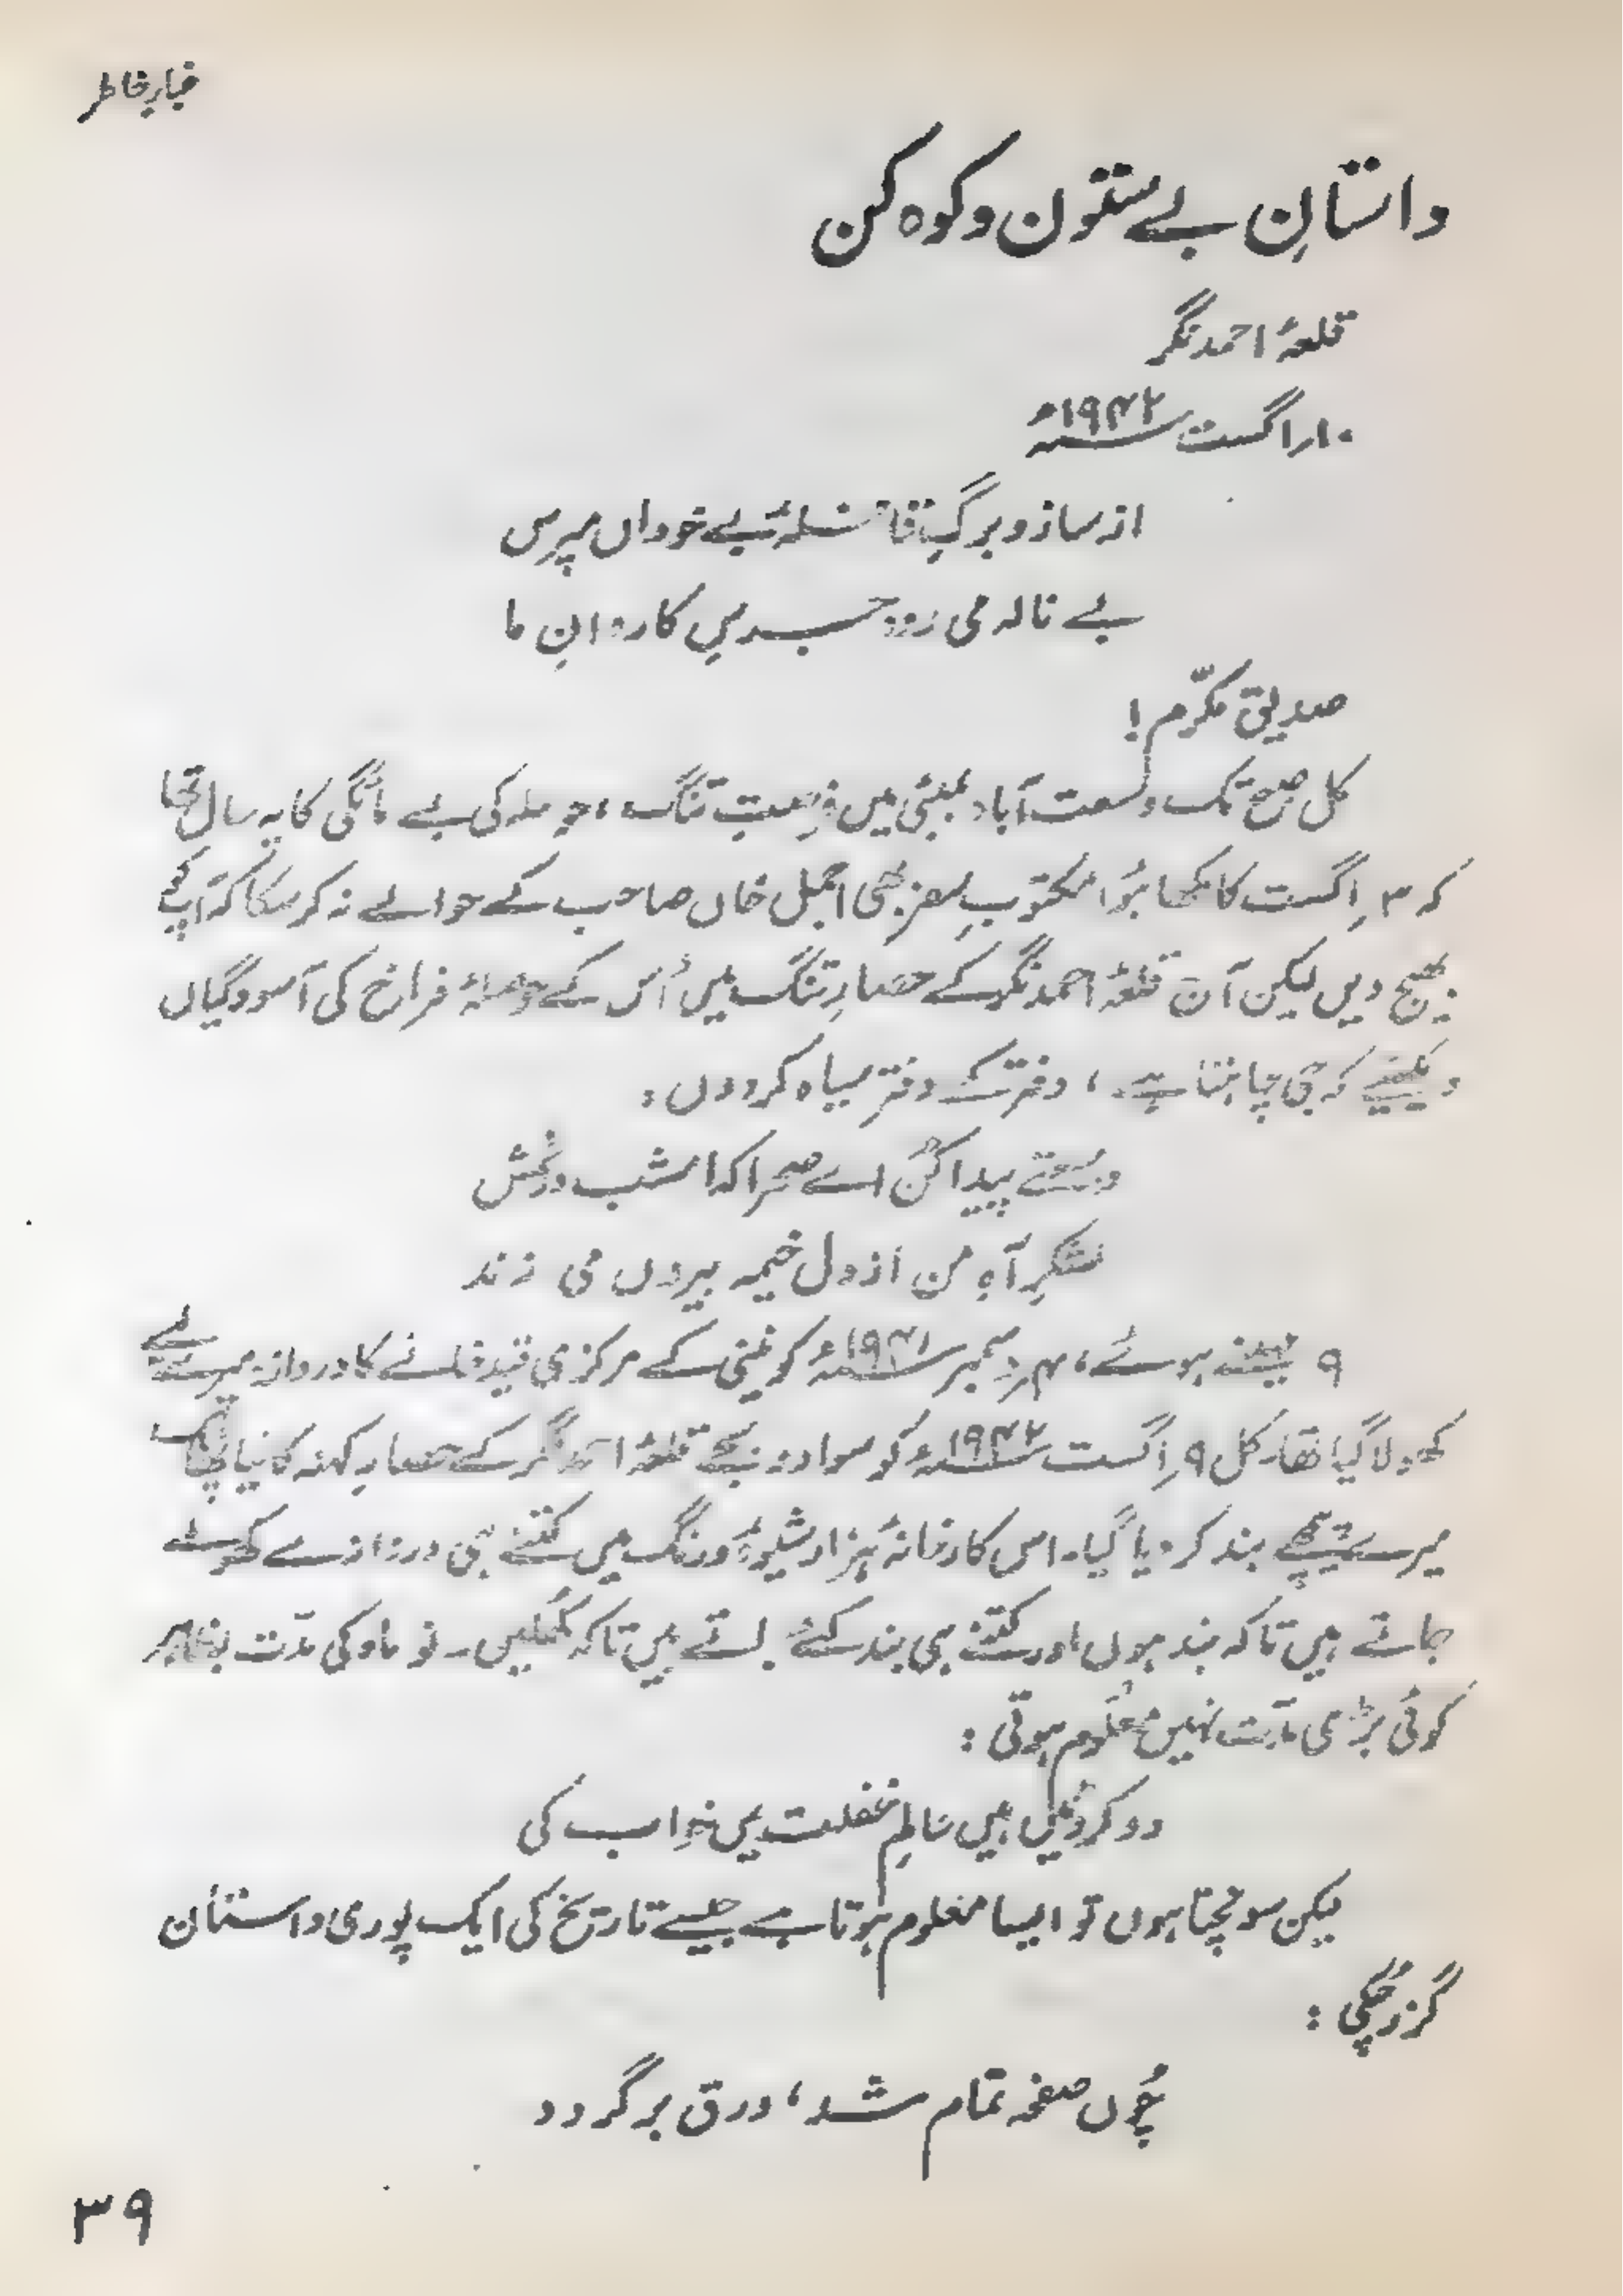 غبارِ خاطر
داستانِ بے ستون و کوہ کن
قلعۂ احمد نگر
۱۰ر اگست ۱۹۴۲ء
از ساز و برگِ قافلۂ بے خوداں مپرس
بے نالہ می رود جرسِ کاروانِ ما
صدیقِ مکرّم!
کل صبح تک وسعت آباد بمبئی میں فرصتِ تنگ، حوصلہ کی بے مائگی کا یہ سال تھا
کہ ۳ر اگست کا لکھا ہُوا مکتوبِ سفر بھی اجمل خاں صاحب کے حوالے نہ کر سکا کہ آپ کے
بھیج دیں لیکن آج قلعۂ احمد نگر کے حصارِ تنگ میں اُس کے حوصلۂ فراخ کی آسودگیاں
دیکھیے کہ جی چاہتا ہے، دفتر کے دفتر سیاہ کر دوں:
وسعتے پیدا کُن اے صحرا کہ امشب در غمش
لشکرِ آہِ من از دل خیمہ بیروں می زند
۹ مہینے ہوئے، ۴ر دسمبر ۱۹۴۱ء کو نینی کے مرکزی قید خانے کا دروازہ میرے لیے
کھولا گیا تھا۔ کل ۹ر اگست ۱۹۴۲ء کو سوا دو بجے قلعۂ احمد نگر کے حصارِ کہنہ کا نیا پھاٹک
میرے پیچھے بند کر دیا گیا۔ اس کارخانۂ ہزار شیوہ و رنگ میں کتنے ہی دروازے کھولے
جاتے ہیں تاکہ بند ہوں اور کتنے ہی بند کئے جاتے ہیں تاکہ کُھلیں۔ نو ماہ کی مدّت بظاہر
کوئی بڑی مدّت نہیں معلوم ہوتی:
دو کروٹیں ہیں عالمِ غفلت میں خواب کی
لیکن سونچتا ہوں تو ایسا معلوم ہوتا ہے جیسے تاریخ کی ایک پوری داستان
گزر چُکی:
چُوں صفحہ تمام شد، ورق برگردد
۳۹